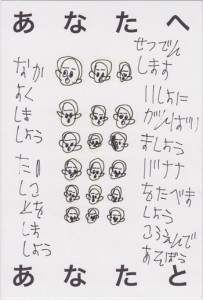 あなたへ
なか
よく
しま
しょう
たの
しこ
とを
しま
しょう
せつでん
します
いしょに
がんばり
ましょう
バナナ
なたべま
しょう
こうえんで
あそぼう
あなたと